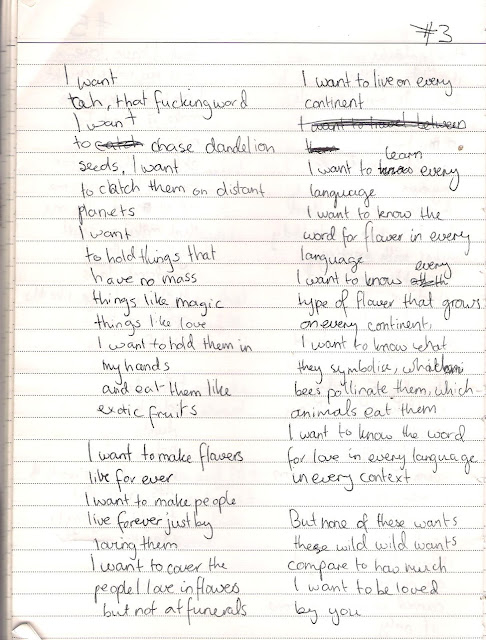 #3
I want
tah, that fucking word
I want
to catch chase dandelion
seeds, I want
to clatch them on distant
planets
I want
to hold things that
have no mass
things like magic
things like love
I want to hold them in
my hands
and eat them like
exotic fruits
I want to make flowers
live for ever
I want to make people
live forever just by
loving them
I want to cover the
people I love in flowes
but not at funerals
I want to live on every
continent
I want to travel between
learn
I want to know every
language
I want to know the
word for flower in every
language
every
I want to know
type of flower that grows
on every continent,
I want to know what
they symbolize, what
bees pollinate them, which
animals eat them
I want to know the word
for love in every language
in every context
But none of these wants
these wild wild wants
compare to how much
I want to be loved
by you